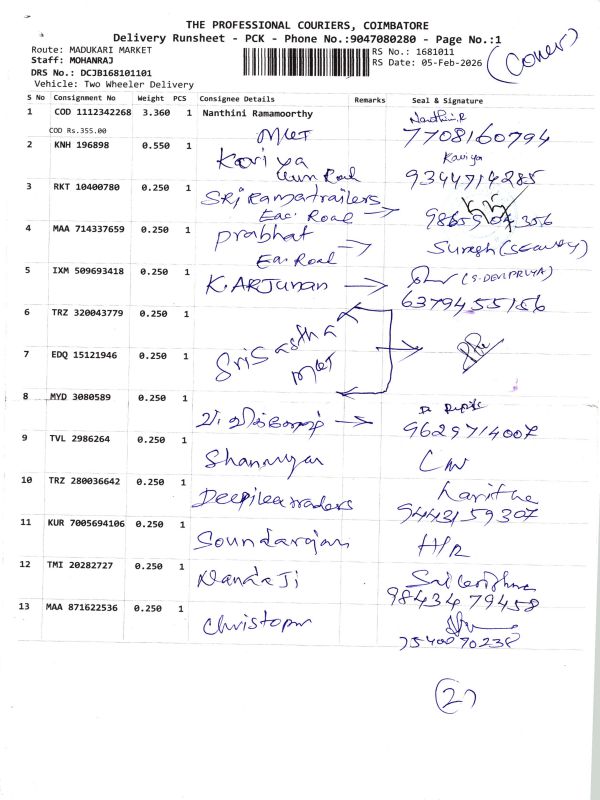 THE PROFESSIONAL COURIERS, COIMBATORE
Delivery Runsheet - PCK - Phone No.:9047080280 - Page No.:1
Route: MADUKARI MARKET
RS No.: 1681011
Staff: MOHANRAJ
RS Date: 05-Feb-2026
DRS No.: DCJB168101101
Vehicle: Two Wheeler Delivery
S No Consignment No Weight PCS Consignee Details Remarks Seal & Signature
1 COD 1112342268 3.360 1 Nanthini Ramamoorthy Nanthini.R
COD Rs.355.00 MKT 7708160794
2 KNH 196898 0.550 1 Kaviya Kaviya
Road 9344714285
3 RKT 10400780 0.250 1 SRi Ramatrailers
Road
4 MAA 714337659 0.250 1 Prabhat Suresh
Road
5 IXM 509693418 0.250 1 K. ARJUNAN (S. DEVIPRIYA)
6379455156
6 TRZ 320043779 0.250 1 Sri Sastha
7 EDQ 15121946 0.250 1 MKT
8 MYD 3080589 0.250 1
9629714007
9 TVL 2986264 0.250 1
10 TRZ 280036642 0.250 1 Haritha
9443159307
11 KUR 7005694106 0.250 1 Soundarajan
12 TMI 20282727 0.250 1 NandaJi Sri Krishna
9843479458
13 MAA 871622536 0.250 1 Christopur
7540070238